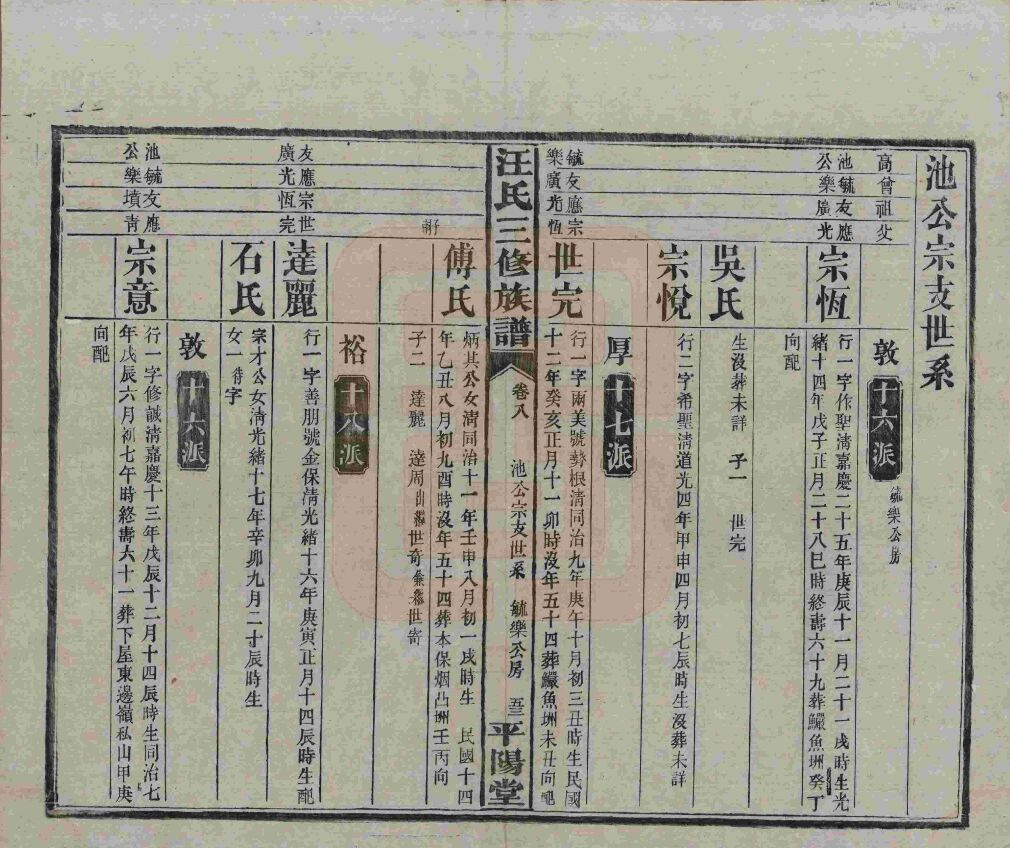 池公宗支世系
高曾祖父
敦 十六派 毓樂公房
池毓友應
公樂廣光
宗恆
行一字作聖清嘉慶二十五年庚辰十一月二十一戌時生光
緒十四年戊子正月二十八巳時終壽六十九葬鱷魚洲癸丁
向配
吳氏
生沒葬未詳 子一 世完
宗悅
行二字希聖清道光四年甲申四月初七辰時生沒葬未詳
厚 十七派
毓友應宗
樂廣光恆
世完
行一字兩美號勢根清同治九年庚午十月初三丑時生民國
十二年癸亥正月十一卯時沒年五十四葬鱷魚洲未丑向配
汪氏三修族譜 卷八 池公宗支世系 毓樂公房 平陽堂
傅氏
炳其公女清同治十一年壬申八月初一戌時生 民國十四
年乙丑八月初九酉時沒年五十四葬本保烟凸洲壬丙向
子二 達麗 達周出繼世奇兼繼世寄
裕 十八派
友應宗世
廣光恆完
達麗
行一字善朋號金保清光緒十六年庚寅正月十四辰時生配
石氏
宗才公女清光緒十七年辛卯九月二十辰時生
女一 待字
敦 十六派
池毓友應
公樂墳靑
宗意
行一字修誠清嘉慶十三年戊辰十二月十四辰時生同治七
年戊辰六月初七午時終壽六十一葬下屋東邊嶺私山甲庚
向配